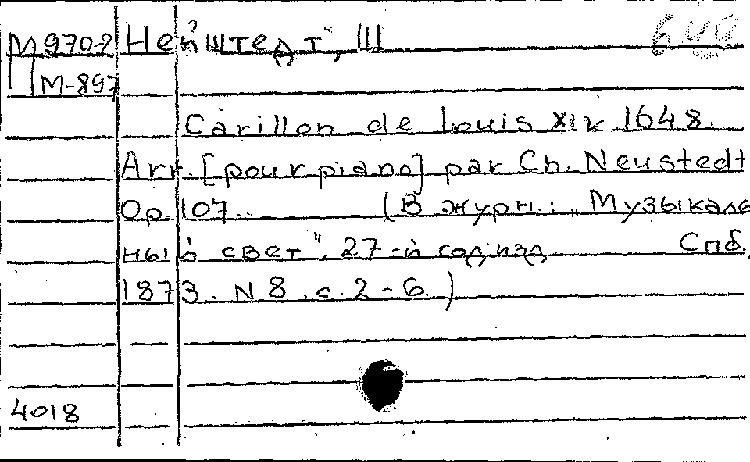 М 970-2 Нейштедт, Ш
М-897
Carillon de Louis XIV 1648.
Arr. [pour piano] par Ch. Neustedt
Op. 107. (В журн.: Музыкаль
ный свет", 27-й год изд. Спб.
1873. N 8. с. 2-6.)
4018